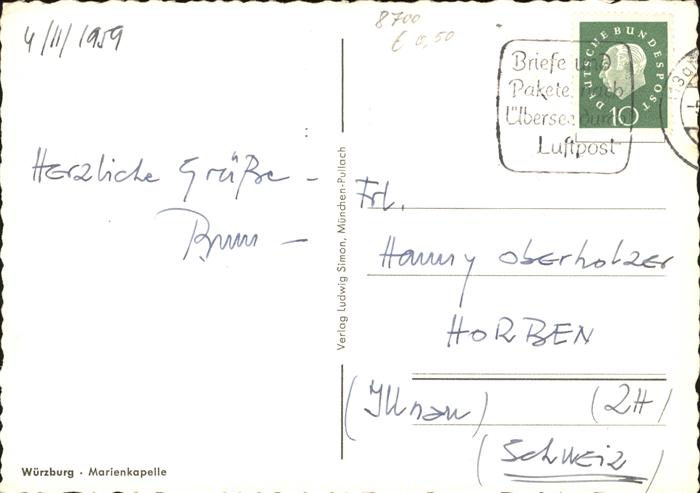 4/11/1959
8700
€ 0,50
Briefe und
Pakete nach
Übersee durch
Luftpost
DEUTSCHE BUNDESPOST
10
Herzliche Grüße –
Frl.
Hanny Oberholzer
HORBEN
(Illnau) (ZH)
(Schweiz)
Verlag Ludwig Simon, München-Pullach
Würzburg · Marienkapelle